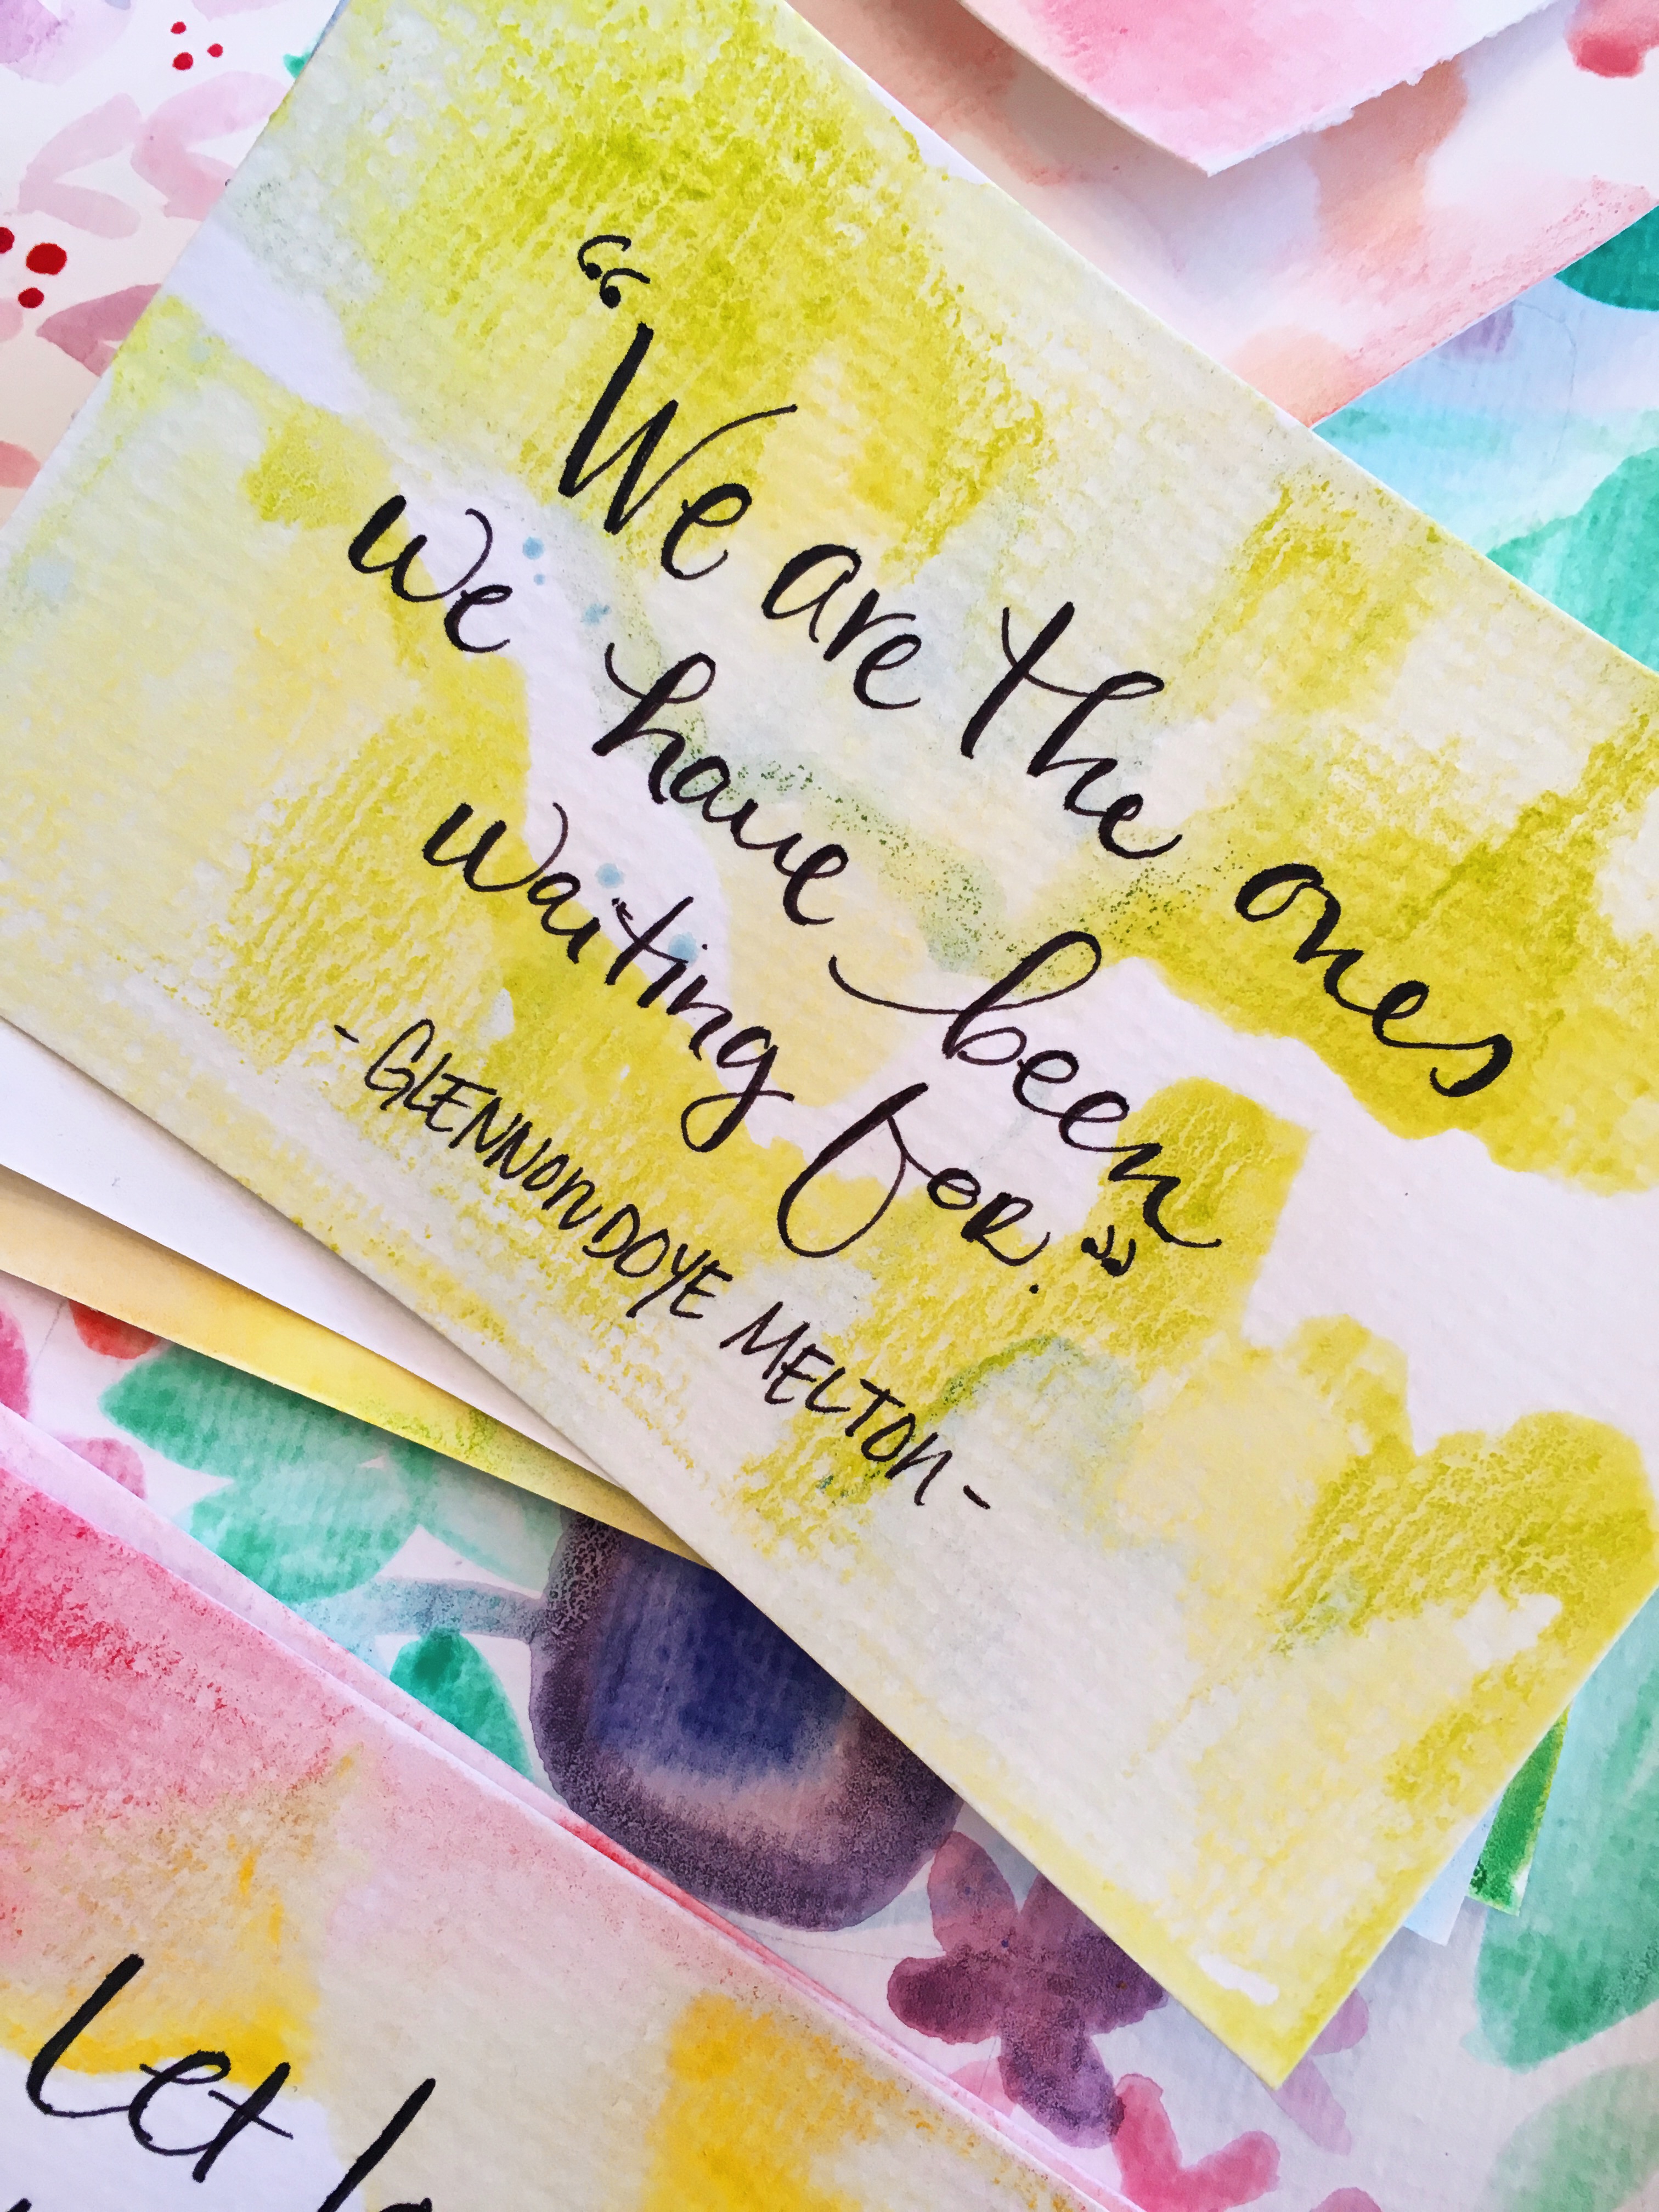 “We are the ones
we have been
waiting for.”
-GLENNON DOYE MELTON-
Let